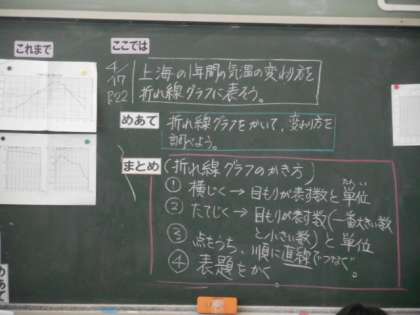 これまで
ここでは
4/17
P.22
上海の1年間の気温の変わり方を
折れ線グラフに表そう。
めあて
折れ線グラフをかいて、変わり方を
調べよう。
まとめ
(折れ線グラフのかき方)
① 横じく→目もりが表す数と単位
たんい
② たてじく→目もりが表す数(一番大きい数
と小さい数)と単位
③ 点をうち、順に直線でつなぐ。
④ 表題をかく。
めあて